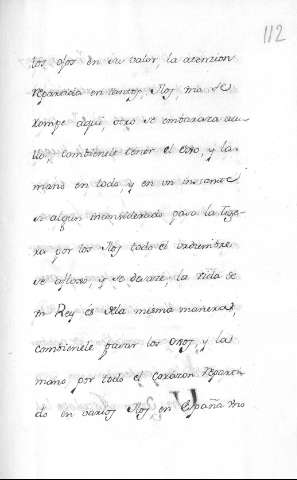 112
los ojos en su valor, la atencion
repartida en tantos ilos, uno se
rompe aqui, otro se embaraza
alli, combienele tener el ojo, y la
mano en todo, y en un instante
se algun inconsiderado pasa la tige-
ra por los ilos todo el urdiembre
se afloxa, y se desaze, la vida de
un Rey és de la misma manera,
combienele pasar los ojos, y la
mano por todo el corazon reparti-
do en varios ilos, en España uno